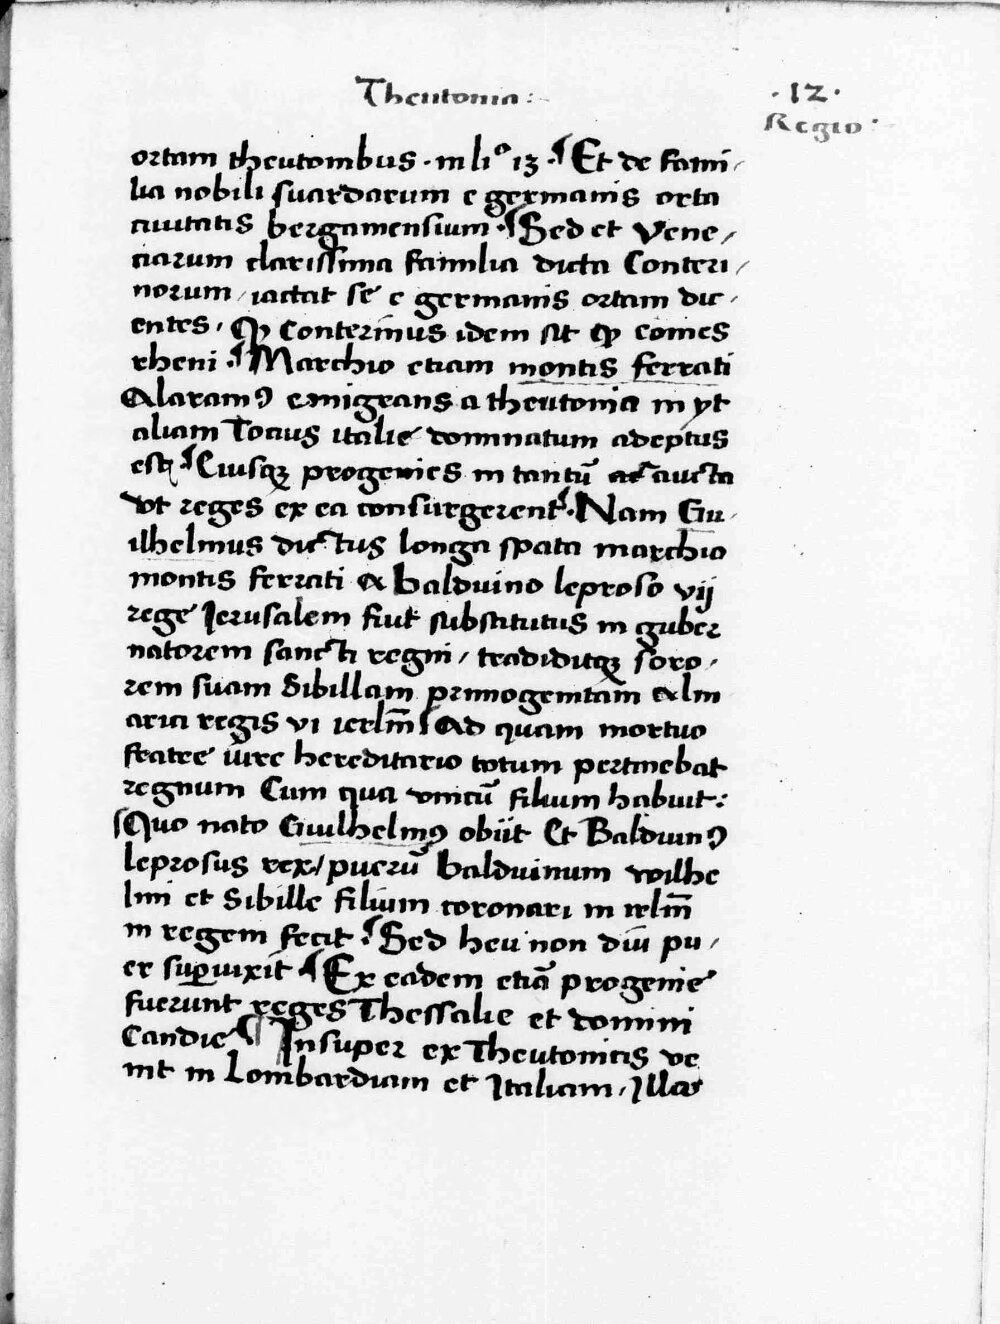 Theutonia:
·12·
Regio:
ortam theutonibus · in li° 13 · ¶ Et de fami/
lia nobili suardorum e germanis orta
ciuitatis bergamensium · ¶ Sed et Vene/
ciarum clarissima familia dicta Conteri/
norum / iactat se e germanis ortam dic/
entes / ꝙ conterinus idem sit ꝙ comes
rheni · ¶ Marchio etiam montis ferrati
Alaramꝰ emigrans a theutonia in yt
aliam Tocius italie dominatum adeptus
est ¶ Cuiusqꝫ progenies in tantū ac aucta
vt reges ex ea consurgerent ¶ · Nam Gu/
ilhelmus dictus longa spata marchio
montis ferrati a balduino leproso vij
rege Jerusalem fiut substitutus in guber
natorem sancti regni / tradiditqꝫ soro/
rem suam Sibillam primogenitam alm
arici regis vi ierlm̄ ¶ Ad quam mortuo
fratre iure hereditario totum pertinebat
regnum Cum qua vnicū filium habuit:
¶ Quo nato Guilhelmꝰ obiit Et Balduinꝰ
leprosus rex / puerū balduinum wilhe
lmi et Sibille filium coronari in irlm̄
in regem fecit · ¶ Sed heu non diu pu/
er suꝑuixit ¶ Ex eadem etiā progenie
fuerunt reges Thessalie et domini
Candie ¶ Insuper ex Theutonicis ve
nit in Lombardiam et Italiam / Illa